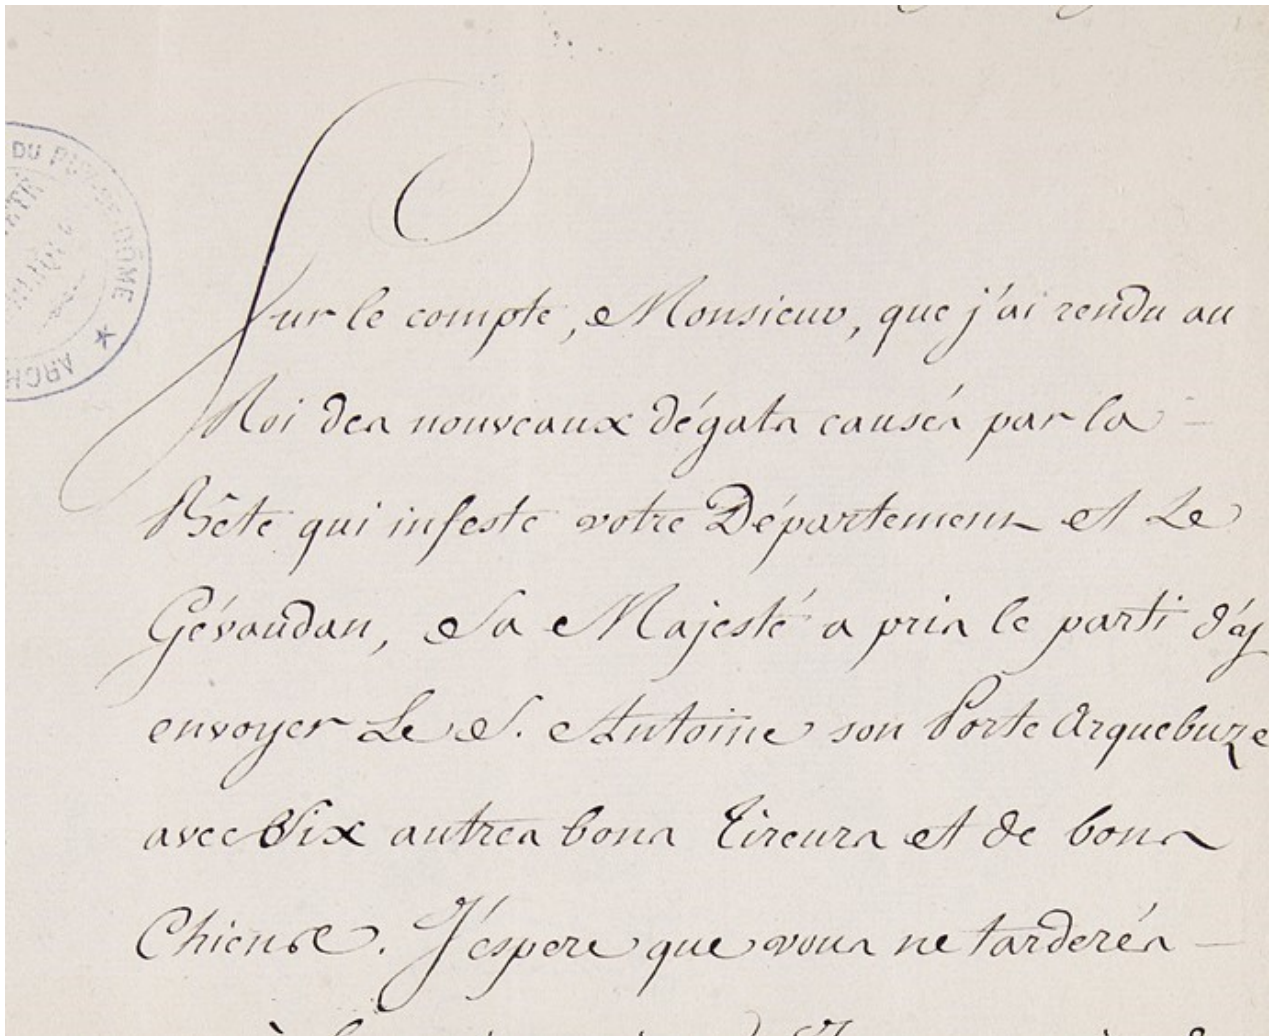 DU PUY-DE-DÔME
ARCH
Sur le compte, Monsieur, que j'ai rendu au
Roi des nouveaux dégats causés par la
Bête qui infeste votre Département et Le
Gévaudan, Sa Majesté a pris le parti d'ÿ
envoyer Le S. Antoine son Porte Arquebuze
avec Six autres bons Tireurs et de bons
Chiens. J'éspere que vous ne tarderés